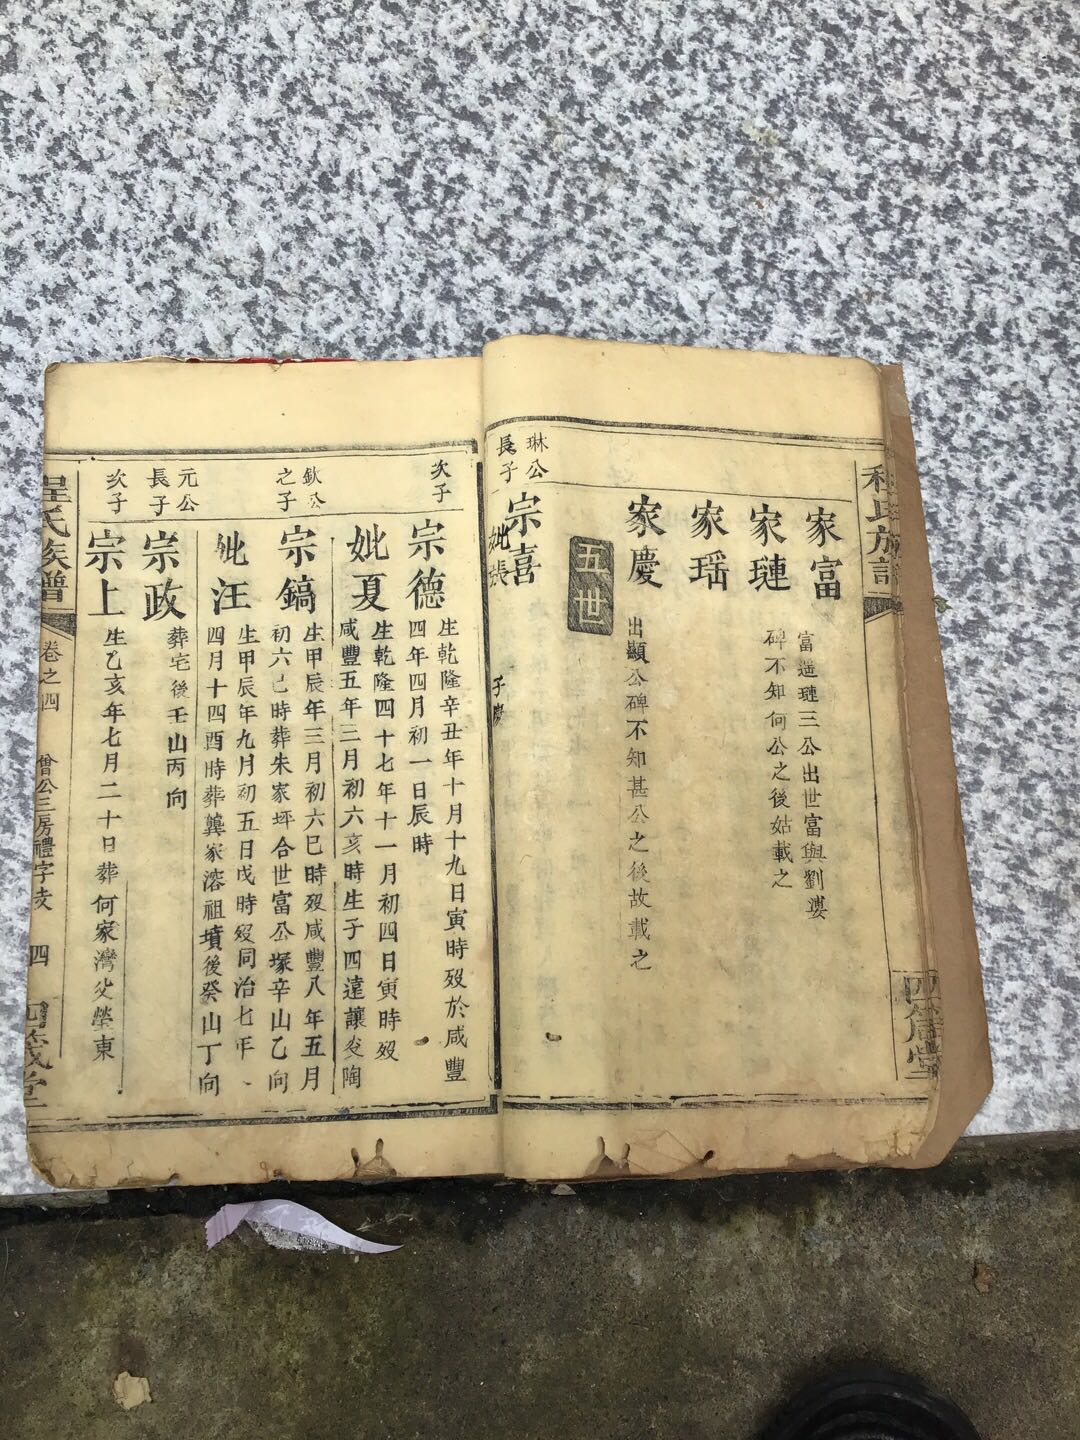 程氏族譜
四箴堂
家富
家璉
富瑤璉三公出世富與劉婆
碑不知何公之後姑載之
家瑶
家慶
出顯公碑不知甚公之後故載之
五世
琳公
長子
宗喜
妣張
子慶
次子
宗德
生乾隆辛丑年十月十九日寅時歿於咸豐
四年四月初一日辰時
妣夏
生乾隆四十七年十一月初四日寅時歿
咸豐五年三月初六亥時生子四遠讓炎陶
欽公
之子
宗鎬
生甲辰年三月初六巳時歿咸豐八年五月
初六巳時葬朱家坪合世富公塚辛山乙向
妣汪
生甲辰年九月初五日戌時歿同治七年
四月十四酉時葬龔家溶祖墳後癸山丁向
元公
長子
宗政
葬宅後壬山丙向
次子
宗上
生乙亥年七月二十日葬何家灣父塋東
程氏族譜
卷之四
曾公三房禮字支
四
四箴堂